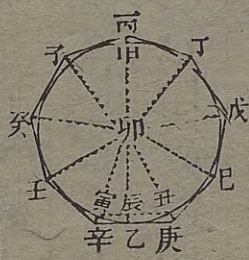 丙
子 丁
癸 戊
卯
壬 己
寅 辰 丑
辛 乙 庚